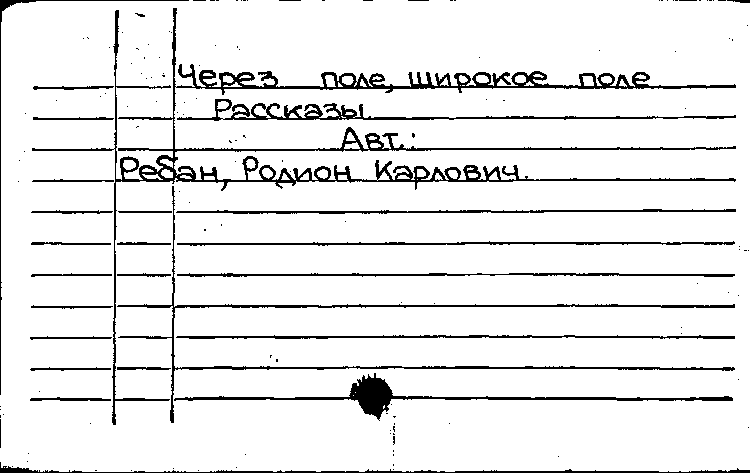 Через поле, широкое поле
Рассказы.
Авт.:
Ребан, Родион Карлович.